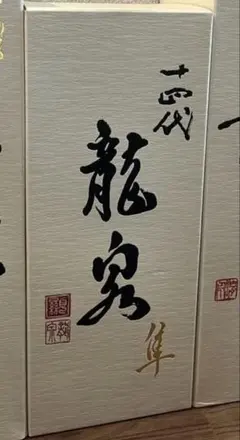 十四代
龍泉
隼